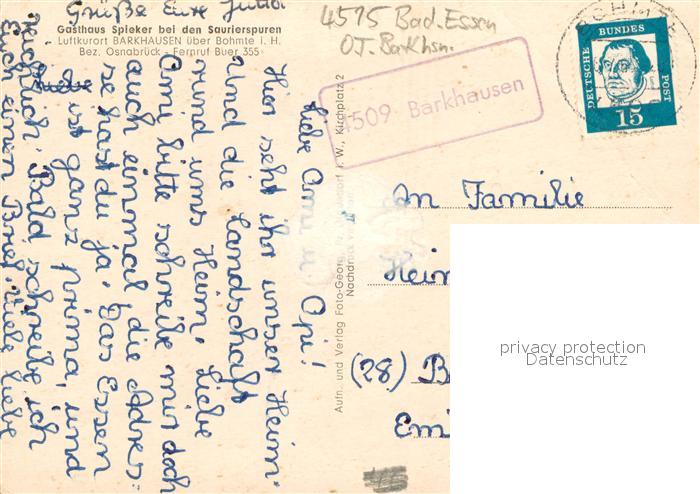 Gasthaus Spieker bei den Saurierspuren
Luftkurort BARKHAUSEN über Bohmte i. H.
Bez. Osnabrück - Fernruf Buer 355
4515 Bad. Essen
O.T. Barkhsn.
4509 Barkhausen
DEUTSCHE BUNDES POST
15
Liebe Omi u. Opi!
Hier seht ihr unser Heim
und die Landschaft
rund ums Heim. Liebe
Omi bitte schreibe mir doch
auch einmal, die Adres=
se hast du ja. Das Essen
ist ganz prima, und
reichlich. Bald schreibe ich
Euch einen Brief. Viele liebe
Grüße Eure Jutta
Aufn. und Verlag Foto-Georg i. W., Kirchplatz 2
Nachdruck
An Familie
Hein
(28) B
Em
privacy protection
Datenschutz